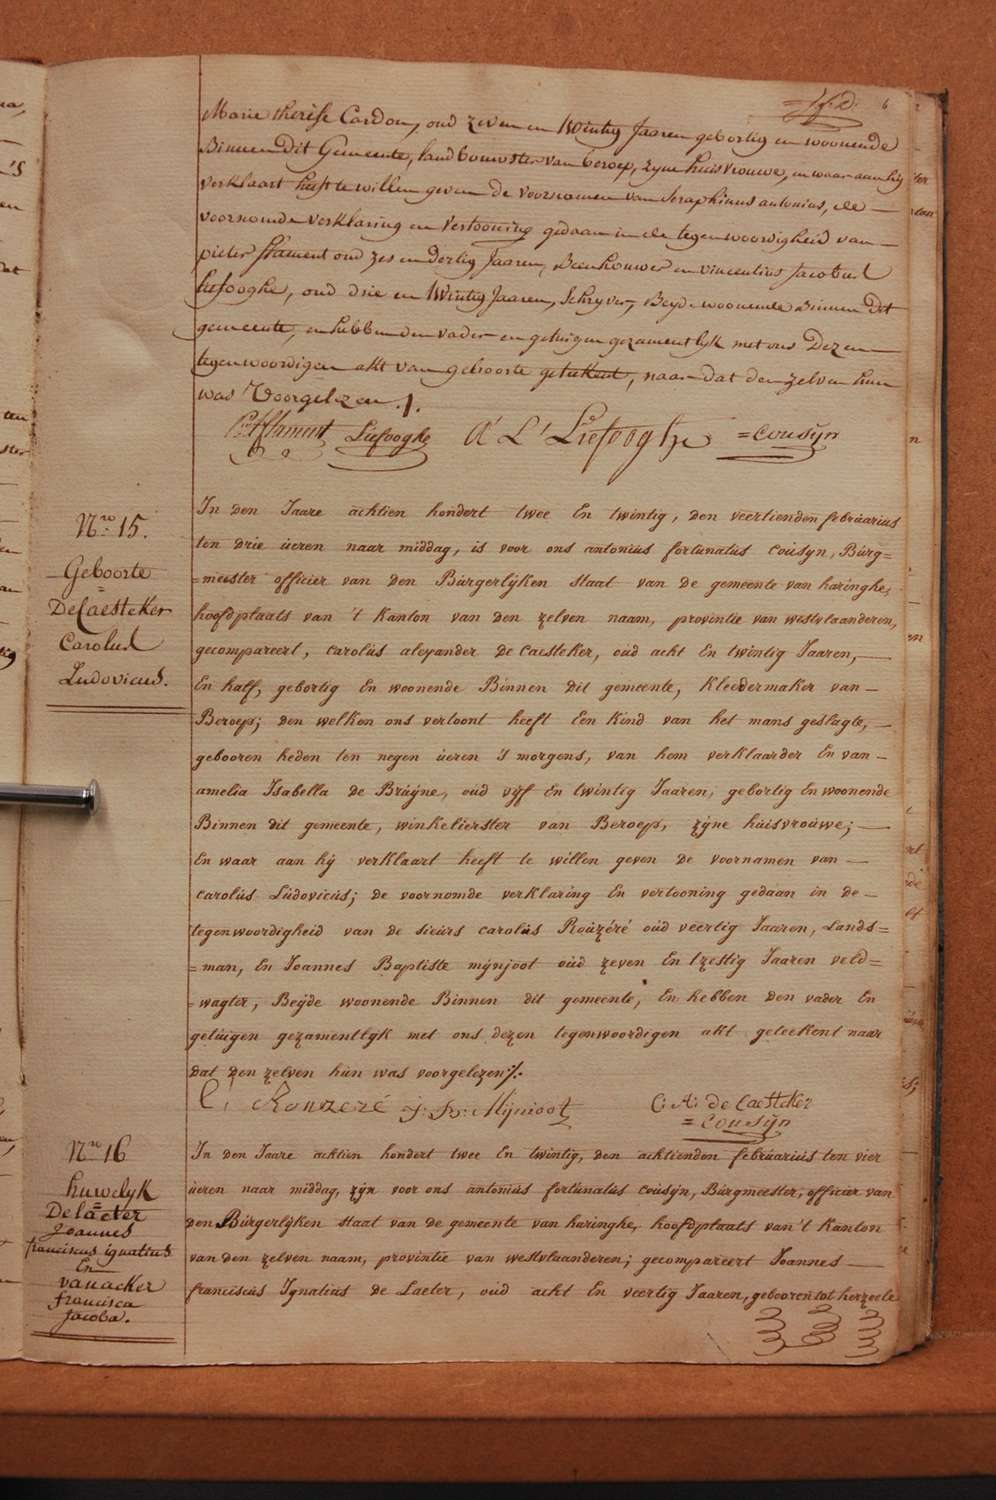 6
Marie therese Cardon, oud zeven en twintig Jaaren gebortig en woonende
Binnen Dit Gemeente, landbouwster van beroep, zyne huisvrouwe, en waar aan hij
verklaart heeft te willen geven de voornomen van Seraphinus antonius, de
voornomde verklaring en vertooning gedaan in de tegenwoordigheid van
pieter flament oud zes en dertig Jaaren, Beenhouwer en vincentius Jacobus
Liefooghe, oud drie en twintig Jaaren, schryver, Beyde woonende Binnen Dit
gemeente, en hebben den vader en getuigen gezamentlyk met ons Dezen
tegenwoordigen akt van geboorte geteekent, naar dat den zelven hun
was Voorgelezen ./.
flament Liefooghe A L Liefooghe =cousyn
Nro 15.
Geboorte
=
De Caesteker
Carolus
Ludovicus.
In den Jaare achtien hondert twee En twintig, den veertienden februarius
ten drie ueren naar middag, is voor ons antonius fortunatus cousyn, Burg=
=meester officier van den Burgerlyken staat van de gemeente van haringhe,
hoofdplaats van 't Kanton van den zelven naam, provintie van westvlaanderen,
gecompareert, carolus alexander De Caesteker, oud acht En twintig Jaaren,
En half, gebortig En woonende Binnen Dit gemeente, Kleedermaker van
Beroep; den welken ons vertoont heeft Een Kind van het mans geslagte,
gebooren heden ten negen ueren 's morgens, van hem verklaarder En van
amelia Isabella de Bruyne, oud vyf En twintig Jaaren, gebortig En woonende
Binnen dit gemeente, winkelierster van Beroep, zyne huisvrouwe;
En waar aan hy verklaart heeft te willen geven de voornamen van
carolus Ludovicus; de voornomde verklaring En vertooning gedaan in de
tegenwoordigheid van de sieurs carolus Rouzéré oud veertig Jaaren, Lands=
=man, En Joannes Baptiste mynjoot oud zeven En tzestig Jaaren veld=
=wagter, Beyde woonende Binnen dit gemeente, En hebben den vader En
getuigen gezamentlyk met ons dezen tegenwoordigen akt geteekent naar
dat den zelven hun was voorgelezen ./.
C. Rouzeré j: B: Mijnioot C: A: de Caesteker
= cousyn
Nro 16
huwelyk
=
De laeter
Joannes
franciscus ignatius
En
van acker
francisca
Jacoba.
In den Jaare achtien hondert twee En twintig, den achtienden februarius ten vier
ueren naar middag, zyn voor ons antonius fortunatus cousyn, Burgmeester, officier van
den Burgerlyken staat van de gemeente van haringhe, hoofdplaats van 't Kanton
van den zelven naam, provintie van westvlaanderen; gecompareert Joannes
franciscus Ignatius de Laeter, oud acht En veertig Jaaren, gebooren tot herzeele